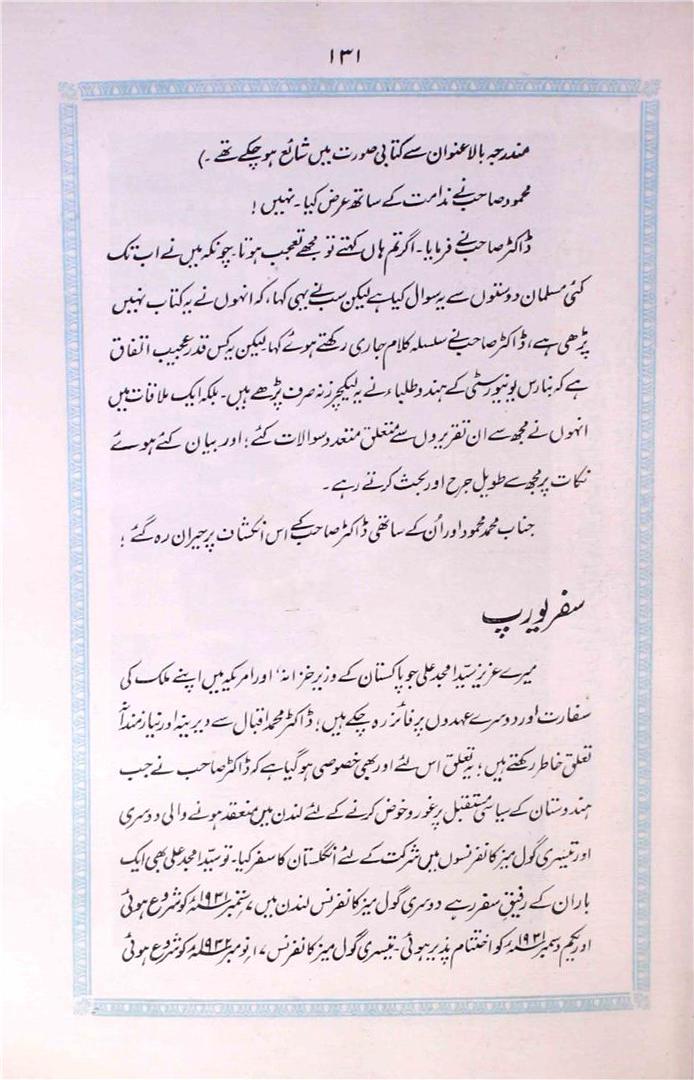 ۱۳۱
مندرجہ بالا عنوان سے کتابی صورت میں شائع ہو چکے تھے ۔)
محمود صاحب نے ندامت کے ساتھ عرض کیا ۔ نہیں !
ڈاکٹر صاحب نے فرمایا ۔ اگر تم ہاں کہتے تو مجھے تعجب ہوتا ۔ چونکہ میں نے اب تک
کئی مسلمان دوستوں سے یہ سوال کیا ہے لیکن سب نے یہی کہا، کہ انہوں نے یہ کتاب نہیں
پڑھی ہے، ڈاکٹر صاحب نے سلسلہ کلام جاری رکھتے ہوئے کہا لیکن یہ کس قدر عجیب اتفاق
ہے کہ بنارس یونیورسٹی کے ہندو طلباء نے یہ لیکچرز نہ صرف پڑھے ہیں ۔ بلکہ ایک ملاقات میں
انہوں نے مجھ سے ان تقریروں سے متعلق متعدد سوالات کئے ؛ اور بیان کئے ہوئے
نکات پر مجھ سے طویل جرح اور بحث کرتے رہے ۔
جناب محمد محمود اور اُن کے ساتھی ڈاکٹر صاحب کے اس انکشاف پر حیران رہ گئے ؛
سفر یورپ
میرے عزیز سیّد امجد علی جو پاکستان کے وزیر خزانہ ' اور امریکہ میں اپنے ملک کی
سفارت اور دوسرے عہدوں پر فائز رہ چکے ہیں ؛ ڈاکٹر محمد اقبال سے دیرینہ اور نیاز مندانہ
تعلق خاطر رکھتے ہیں ؛ یہ تعلق اس لئے اور بھی خصوصی ہو گیا ہے کہ ڈاکٹر صاحب نے جب
ہندوستان کے سیاسی مستقبل پر غور و خوض کرنے کے لئے لندن میں منعقد ہونے والی دوسری
اور تیسری گول میز کانفرنسوں میں شرکت کے لئے انگلستان کا سفر کیا ۔ تو سیّد امجد علی بھی ایک
بار ان کے رفیق سفر رہے دوسری گول میز کانفرنس لندن میں ۷ ستمبر ۱۹۳۱ء کو شروع ہوئی
اور یکم دسمبر ۱۹۳۱ء کو اختتام پذیر ہوئی ۔ تیسری گول میز کانفرنس ۱۷ نومبر ۱۹۳۲ء کو شروع ہوئی